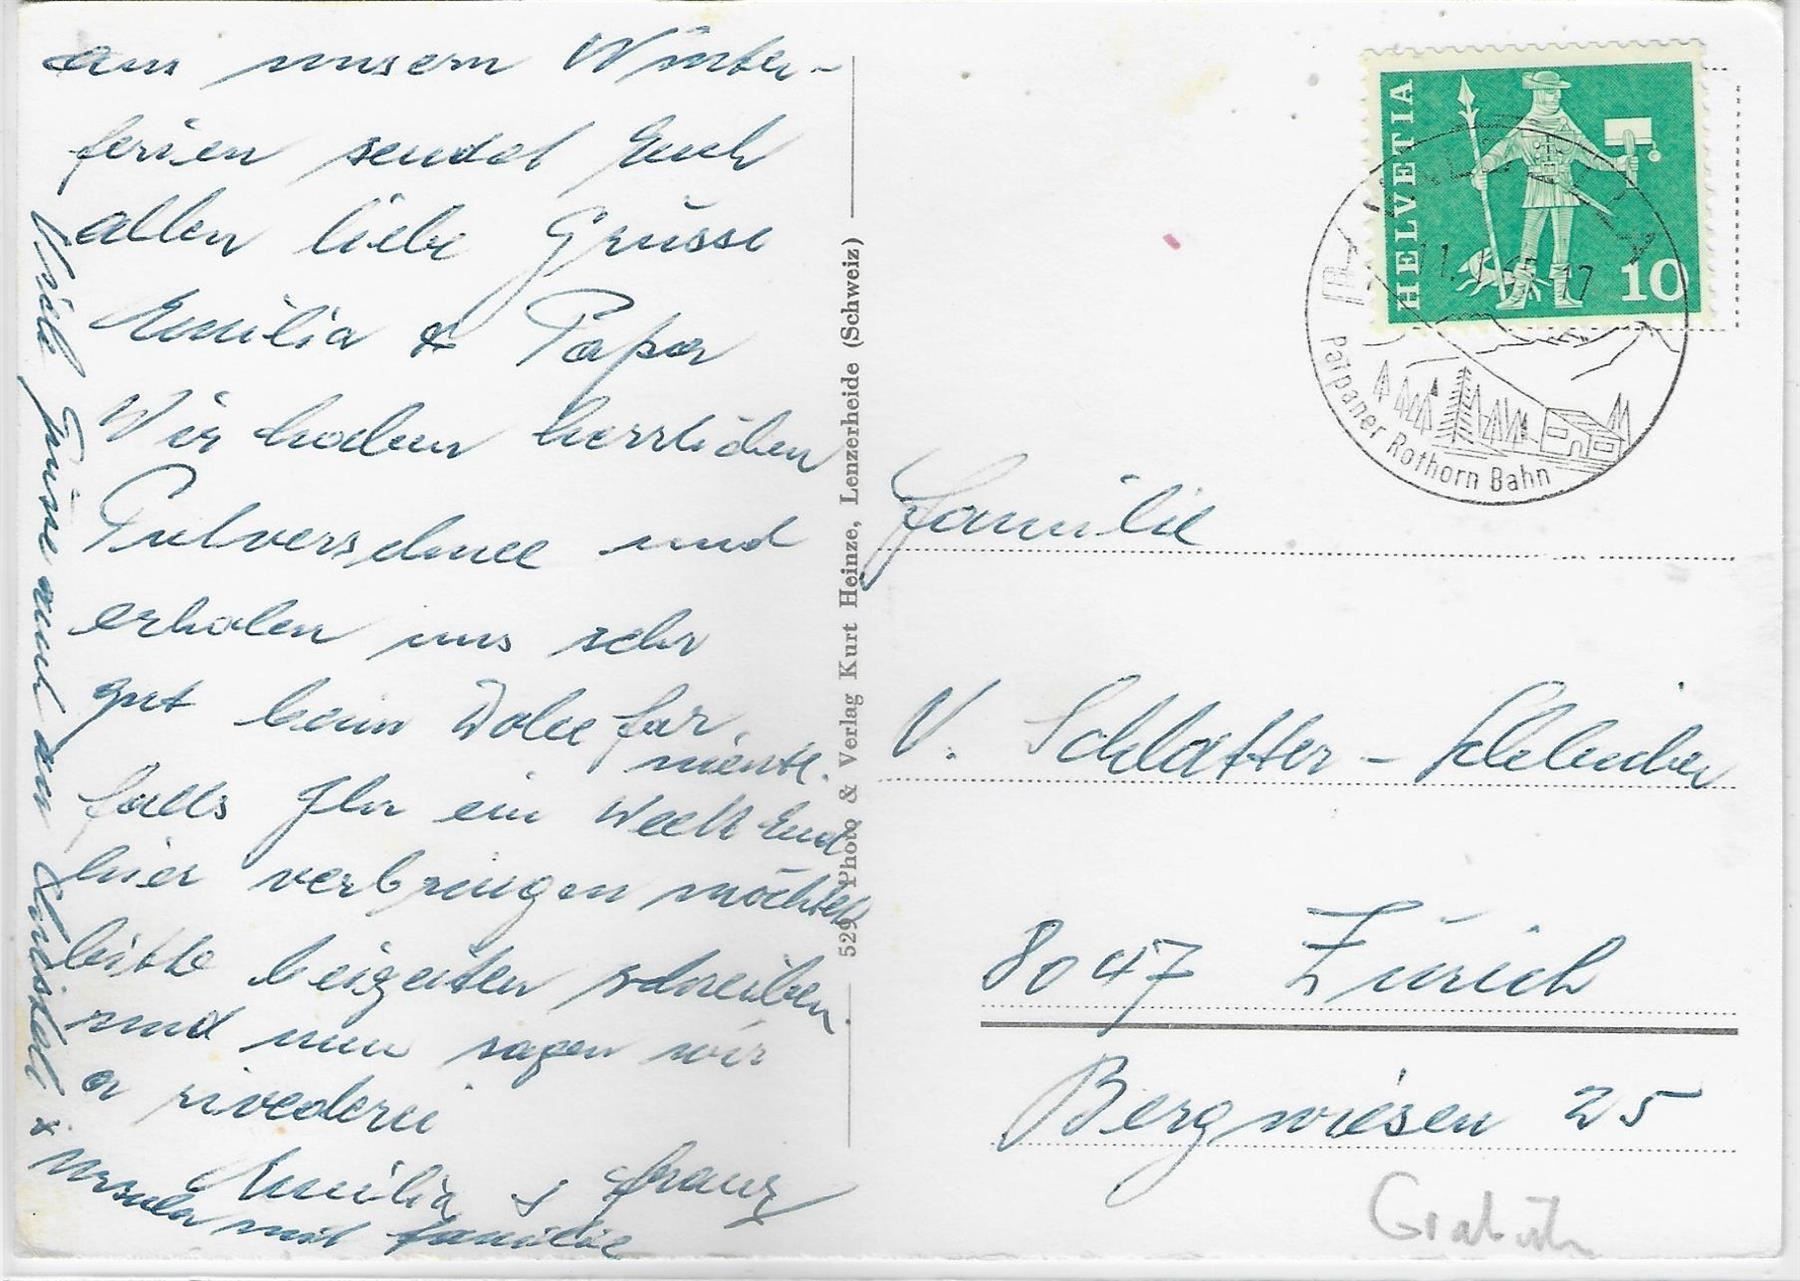 aus unsern Winter-
ferien sendet Euch
allen liebe Grüsse
Emilia & Papa
Wir haben herrlichen
Pulverschnee und
erholen uns sehr
gut beim Dolce far
niente.
falls Ihr ein Week End
hier verbringen möchtet
bitte beizeiten schreiben
und nun sagen wir
a rivederci
Emilia & Franz
Viele Grüsse auch an Christel &
Ursula mit Familie
529 Photo & Verlag Kurt Heinze, Lenzerheide (Schweiz)
HELVETIA
10
Parpaner Rothorn Bahn
Familie
V. Schlatter -
8047 Zürich
Bergwiesen 25